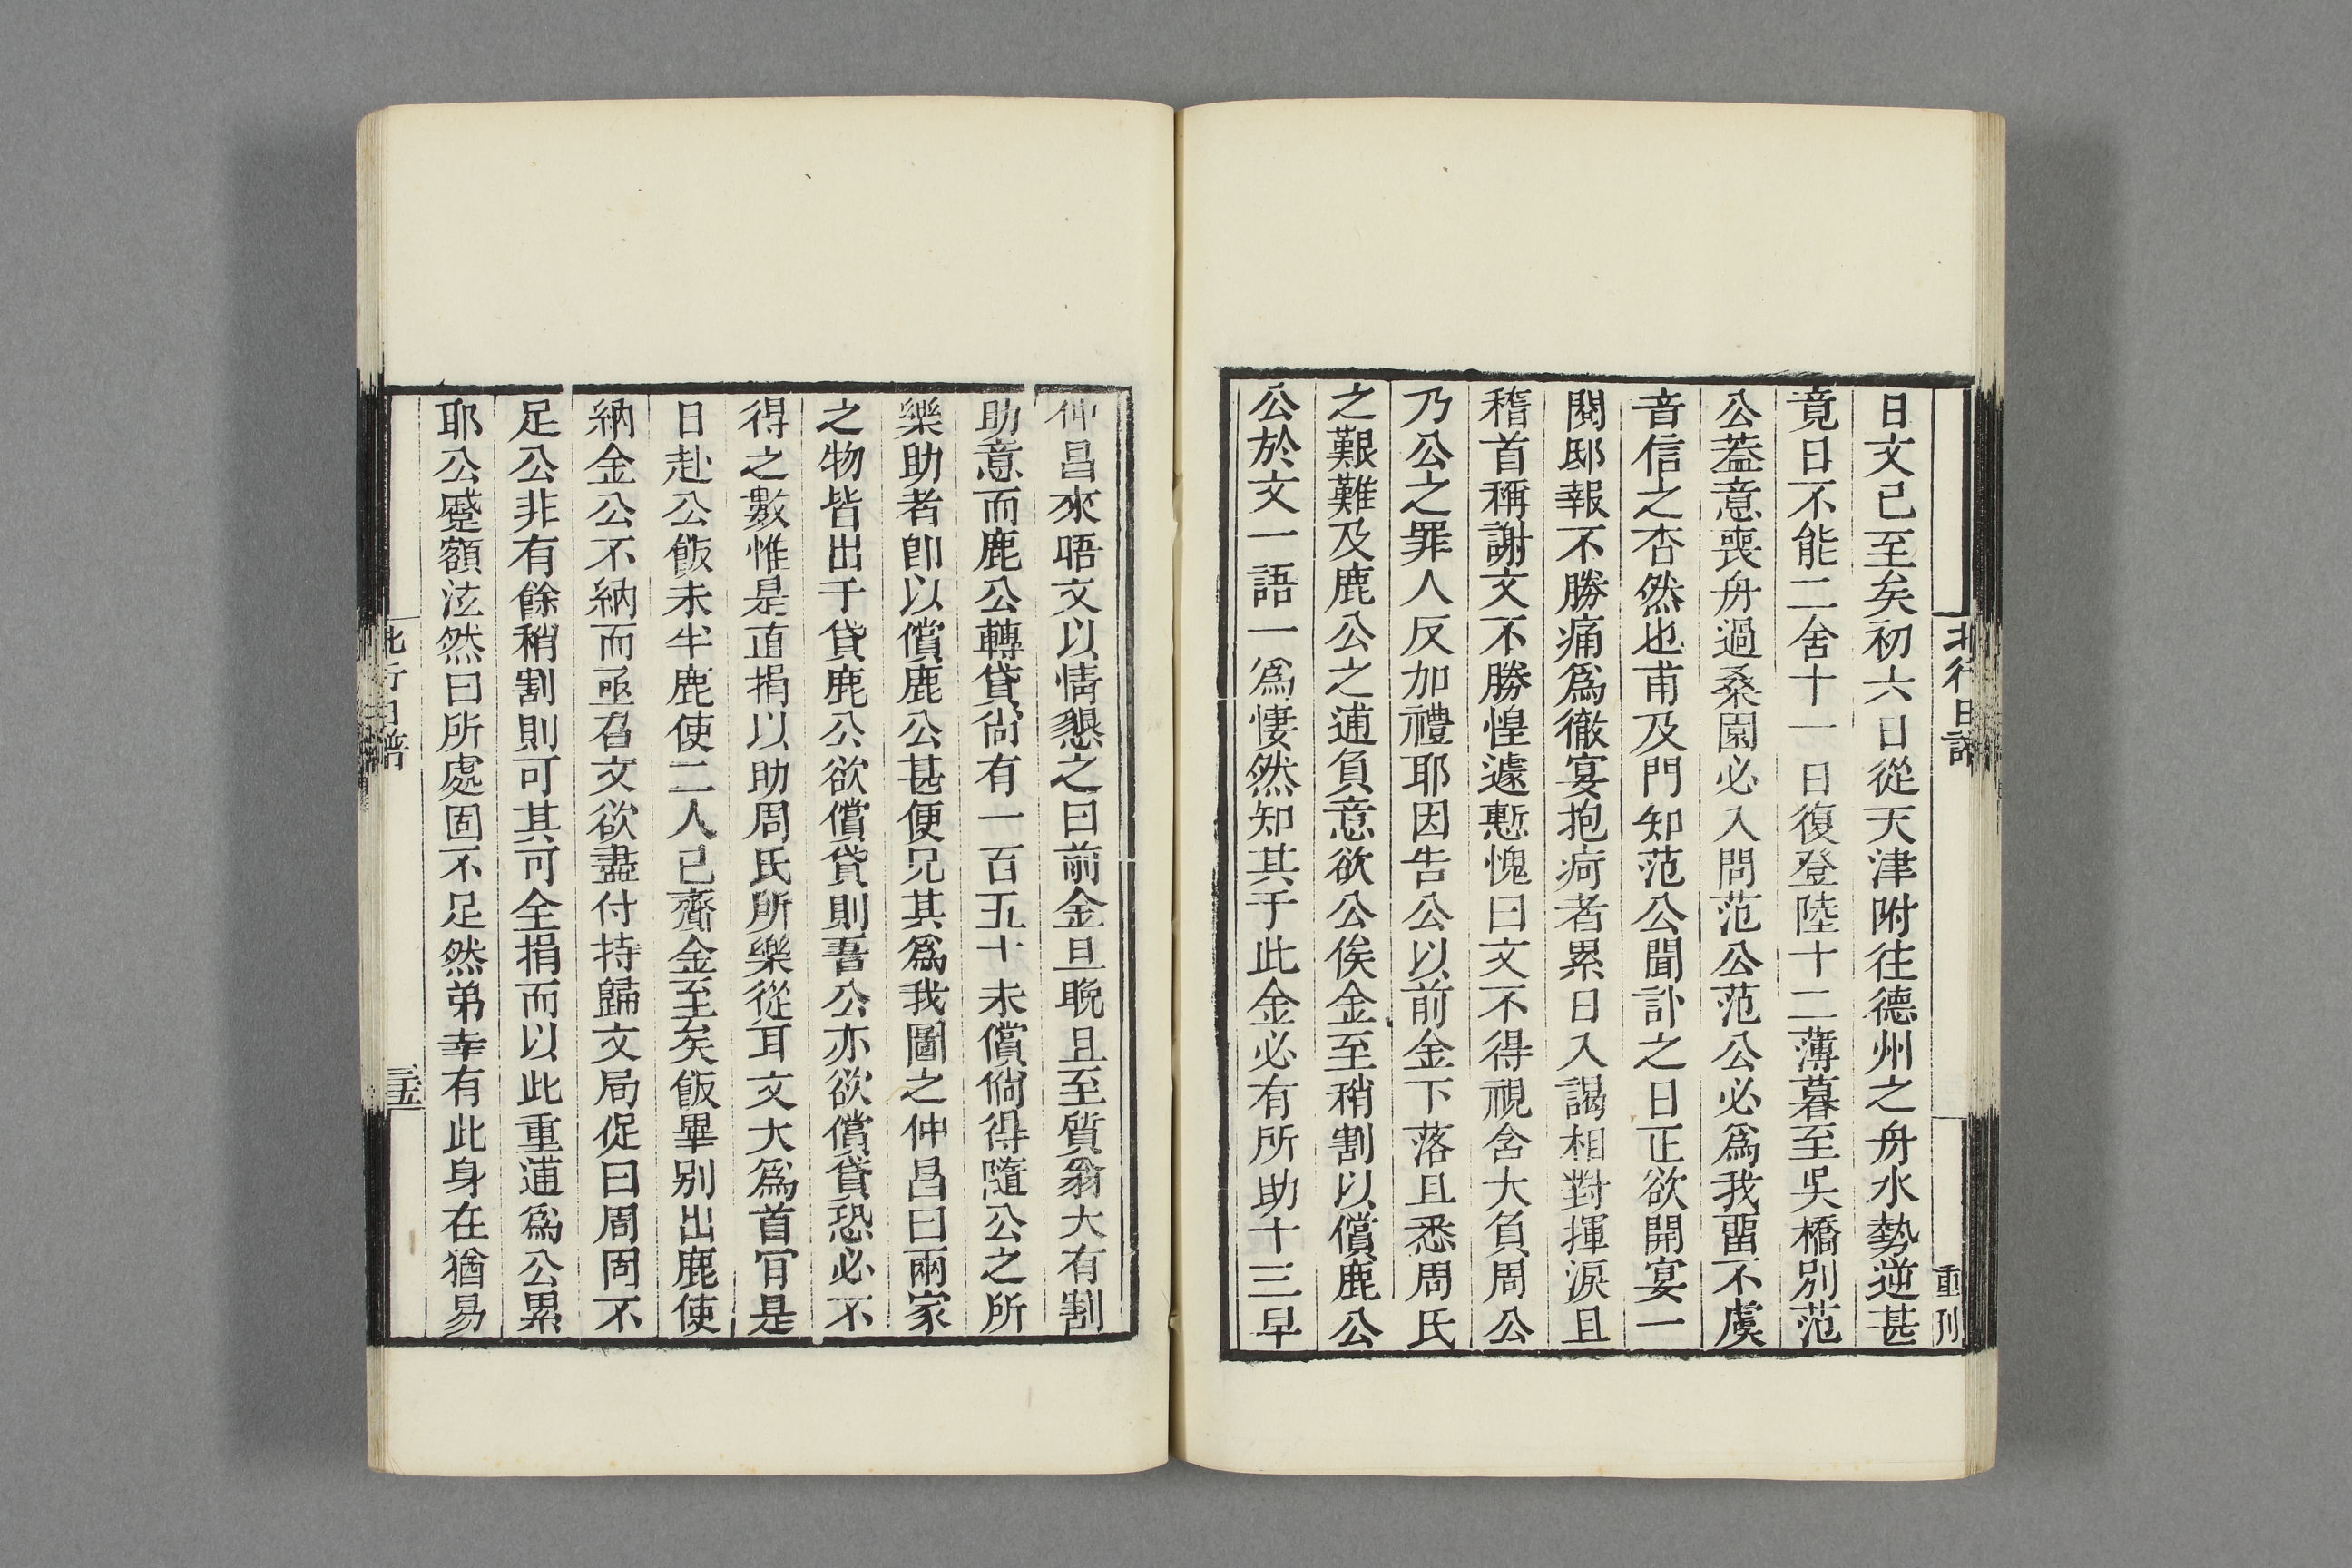 北行日譜
重刊
日文已至矣初六日從天津附往德州之舟水勢逆甚
竟日不能二舍十一日復登陸十二薄暮至吳橋別范
公蓋意喪舟過桑園必入問范公范公必爲我畱不虞
音信之杏然也甫及門知范公聞訃之日正欲開宴一
閱邸報不勝痛爲徹宴抱疴者累日入謁相對揮淚且
稽首稱謝文不勝惶遽慙愧曰文不得視含大負周公
乃公之罪人反加禮耶因告公以前金下落且悉周氏
之艱難及鹿公之逋負意欲公俟金至稍割以償鹿公
公於文一語一爲悽然知其于此金必有所助十三早
仲昌來唔文以情懇之曰前金旦晚且至質翁大有割
助意而鹿公轉貸尙有一百五十未償倘得隨公之所
樂助者卽以償鹿公甚便兄其爲我圖之仲昌曰兩家
之物皆出于貸鹿公欲償貸則吾公亦欲償貸恐必不
得之數惟是直捐以助周氏所樂從耳文大爲首肎是
日赴公飯未半鹿使二人已齎金至矣飯畢别出鹿使
納金公不納而亟召文欲盡付持歸文局促曰周固不
足公非有餘稍割則可其可全捐而以此重逋爲公累
耶公蹙額泫然曰所處固不足然弟幸有此身在猶易
北行日譜
三五